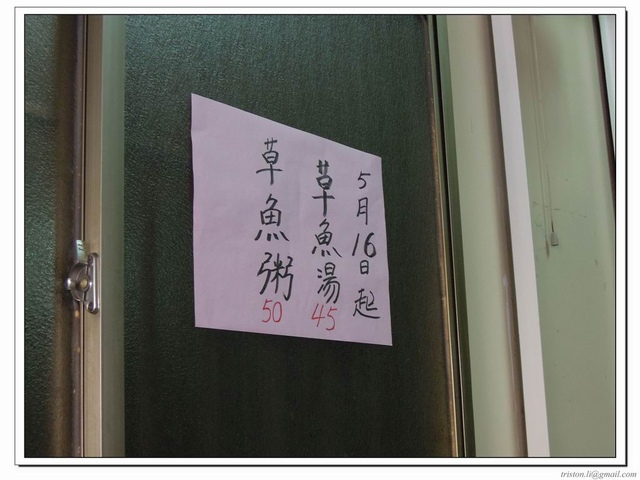 5月16日起
草魚湯
45
草魚粥
50
triston.li@gmail.com